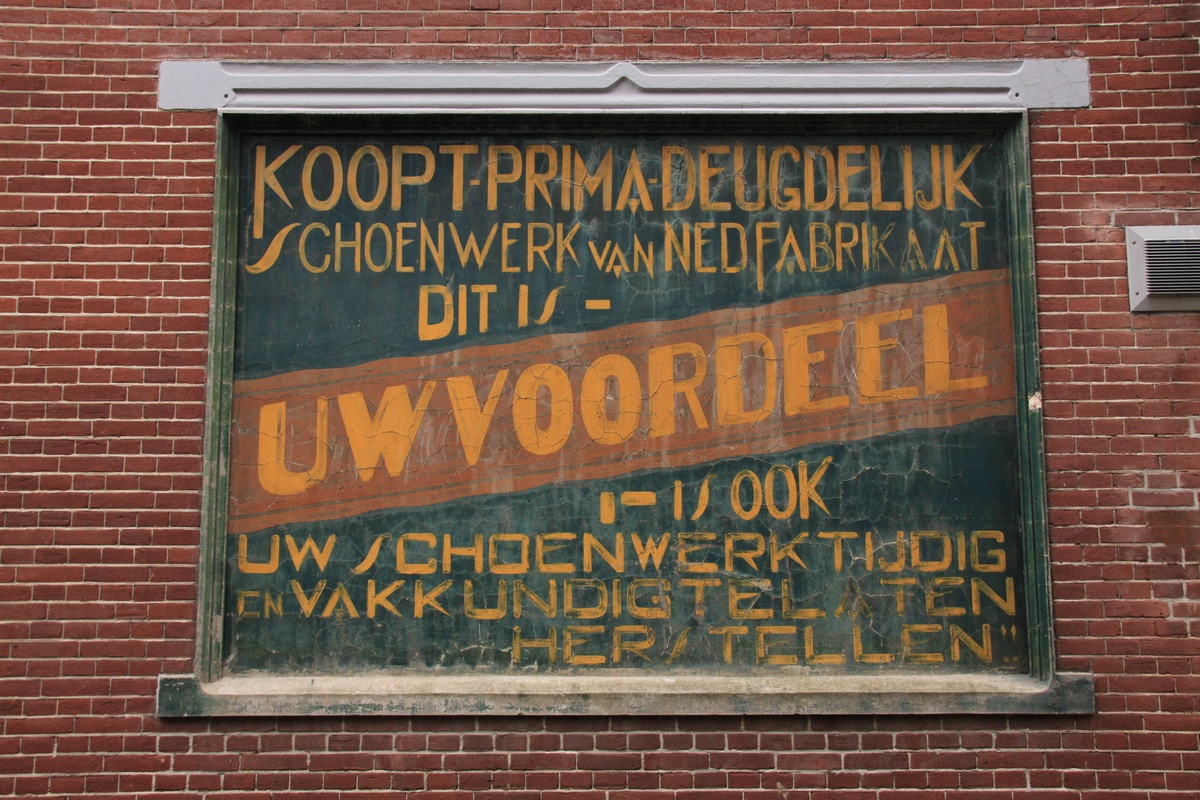 KOOPT-PRIMA-DEUGDELIJK
SCHOENWERK VAN NEDFABRIKAAT
DIT IS -
UW VOORDEEL
,- IS OOK
UW SCHOENWERK TIJDIG
EN VAKKUNDIG TE LATEN
HERSTELLEN"